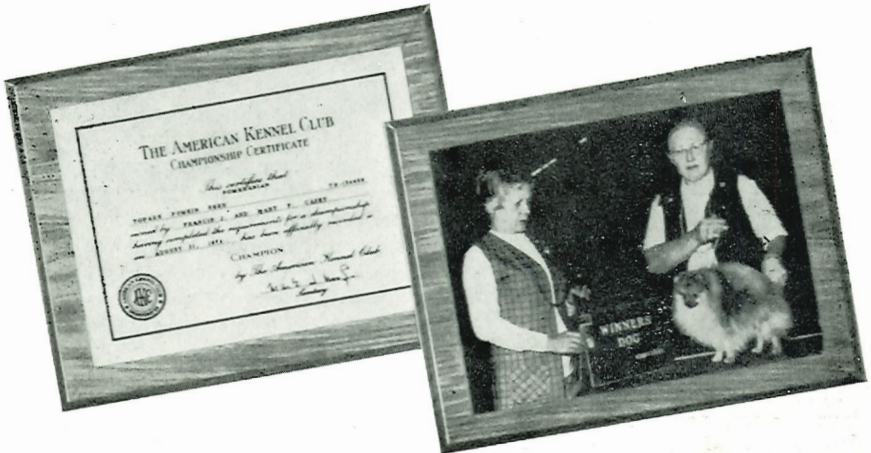 THE AMERICAN KENNEL CLUB
CHAMPIONSHIP CERTIFICATE
This certifies that
POMERANIAN
owned by FRANCIS J. AND MARY P. CASEY
having completed the requirements for a championship
on AUGUST 31, 1974 has been officially recorded a
CHAMPION
by The American Kennel Club
Secretary
WINNERS
DOG